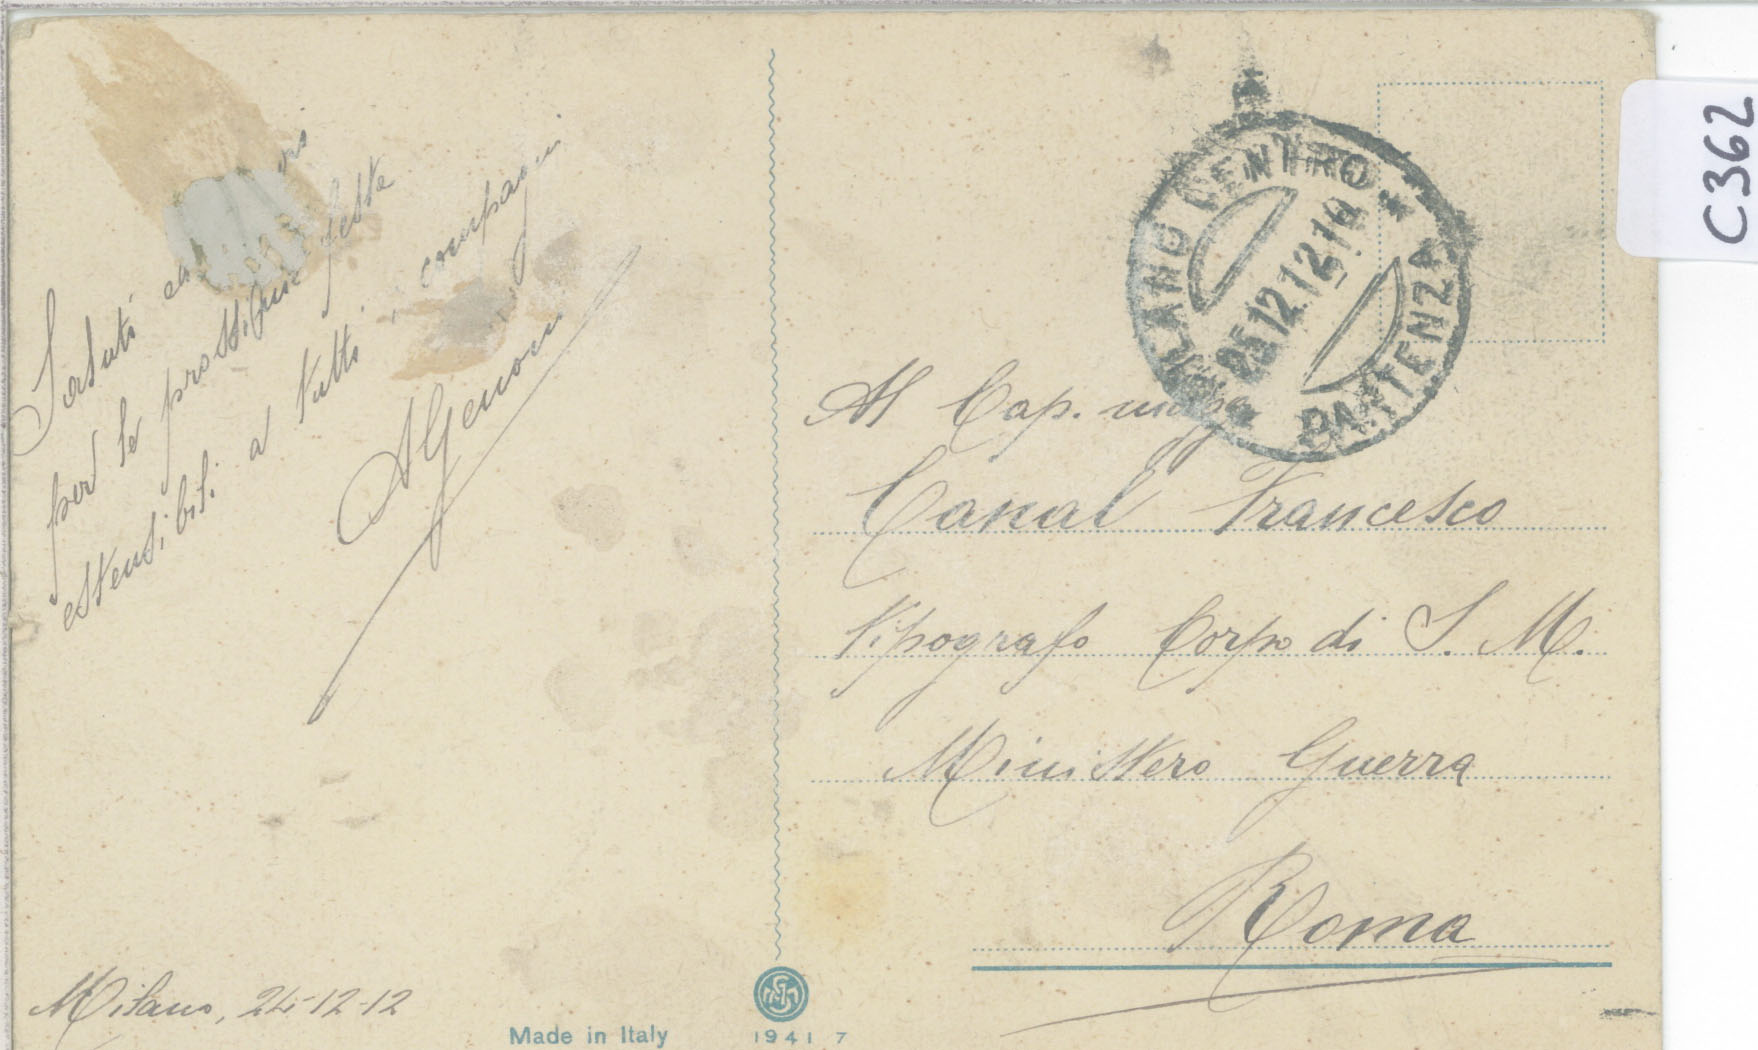 Saluti
per le prossime feste
estensibili a tutti i compagni
AGenoni
Milano, 24-12-12
Made in Italy
1941 7
MILANO CENTRO
25.12.12.19
PARTENZA
Al Cap. magg.
Canal Francesco
Tipografo Corpo di S. M.
Ministero Guerra
Roma
C362